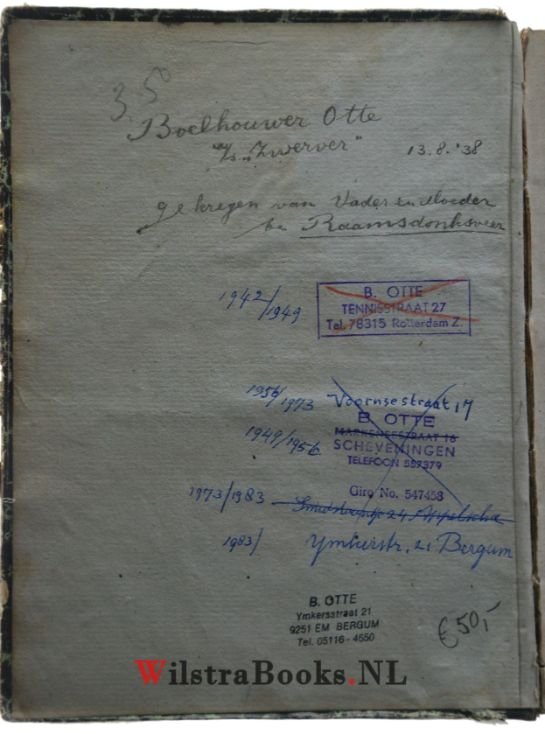 3.50
Boelhouwer Otte
"Zwerver"
13.8.'38
gekregen van Vader en Moeder
te Raamsdonksveer
1942/1949
B. OTTE
TENNISSTRAAT 27
Tel. 78315 Rotterdam Z.
1956/1973 Voornsestraat 17
B. OTTE
1949/1956
SCHEVENINGEN
TELEFOON 557379
Giro No. 547458
1973/1983 24 Appelscha
1983/ Ymkerstr. 21 Bergum
B. OTTE
Ymkersstraat 21
9251 EM BERGUM
Tel. 05116 - 4650
€50,-
WilstraBooks.NL